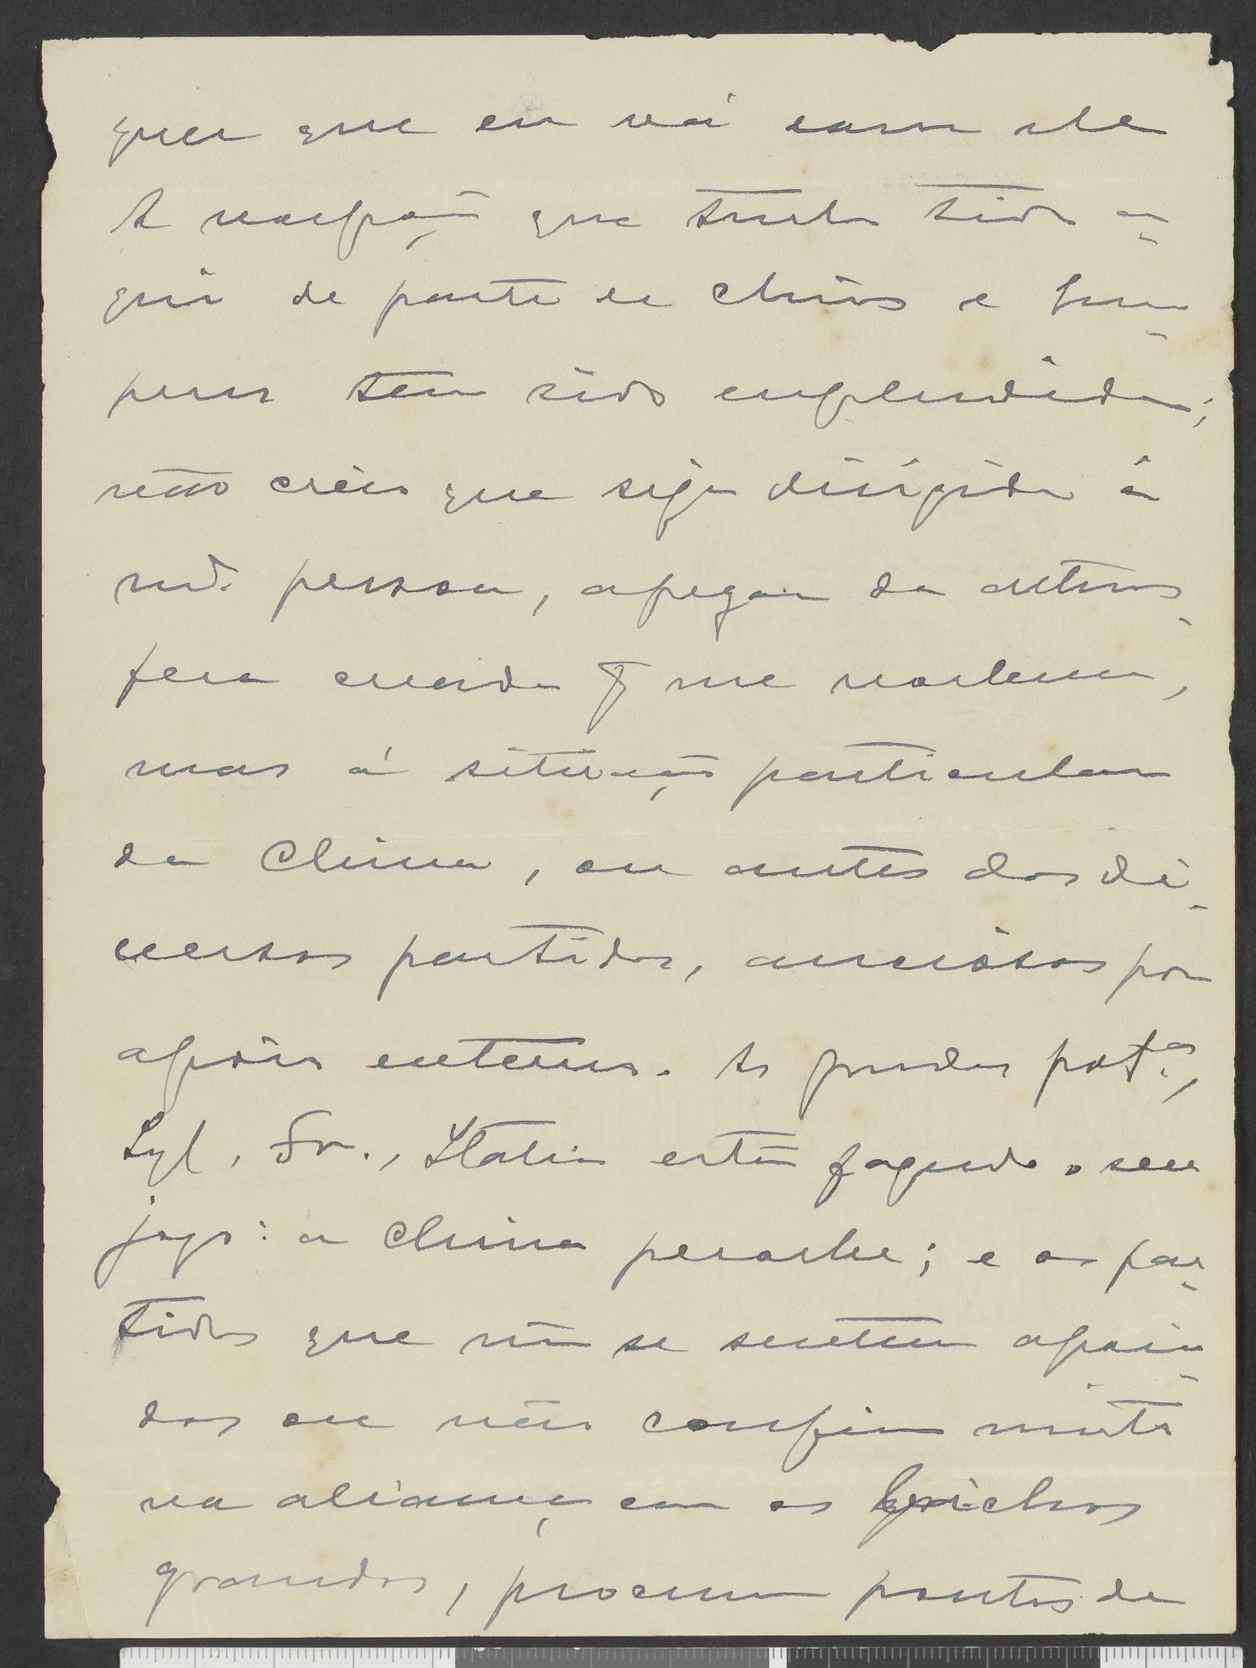 quer que eu vá com ele
A recepção que tenho tido a-
qui de parte de chins e euro-
peus tem sido esplendida;
não creio que seja dirigida á
md. pessoa, apezar da atmos-
fera creada q me rodeia,
mas á situação particular
da China, ou antes dos di-
versos partidos, anciosos por
apôio externo. As grandes pot.as,
Ingl, Fr., Italia estão jogando o seu
jogo: a China percebe; e os par-
tidos que não se sentem apoia-
dos ou não confiam muito
na aliança com os bichos
grandes, procuram pontos de